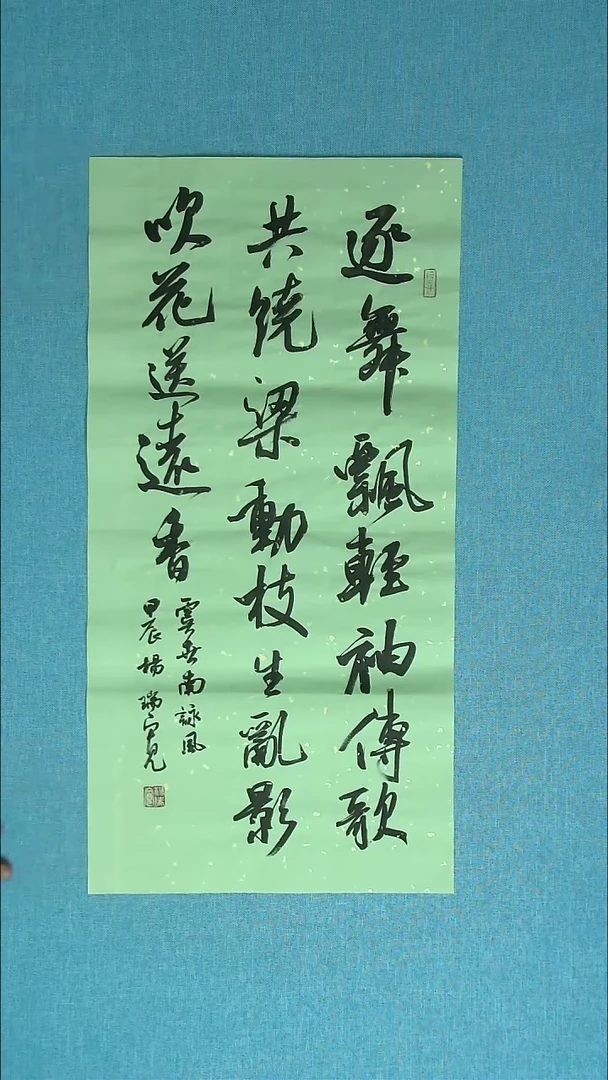 逐舞飄輕袖傳歌
共饒梁動枝生亂影
吹花送遠香
虞世南詠風
甲辰楊瑞宪